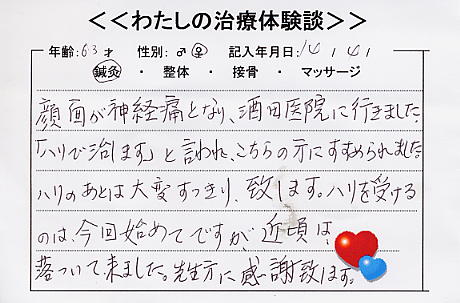 <<わたしの治療体験談>>
年齢:63才 性別:♂♀ 記入年月日:14/4/
鍼灸・整体・接骨・マッサージ
顔面が神経痛となり、酒田医院に行きました。
「ハリで治します」と言われ、こちらの方にすすめられました。
ハリのあとは大変すっきり、致します。ハリを受ける
のは、今回始めてですが近頃は、
落ついて来ました。先生方に感謝致します。